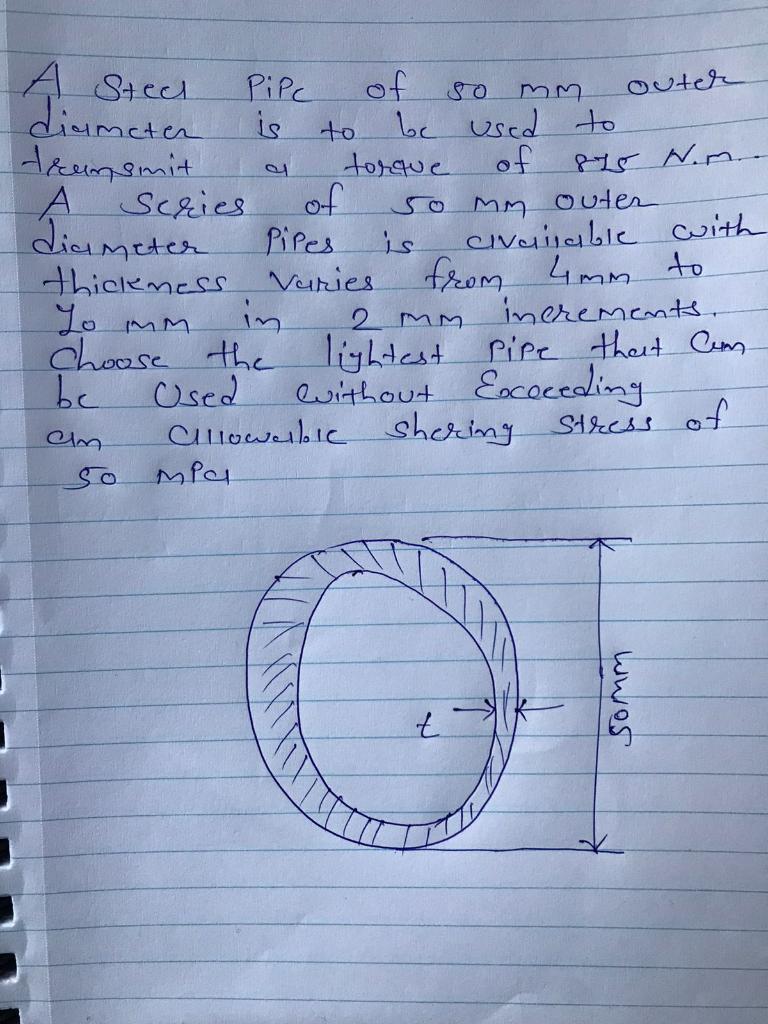 A Steel Pipe of 50 mm outer
diameter is to be used to
transmit a torque of 875 N.m.
A Series of 50 mm outer
diameter Pipes is available with
thickness Varies from 4mm to
20 mm in 2 mm increments.
Choose the lightest Pipe that Can
be Used without Exceeding
an allowable shering stress of
50 mPa
t
50mm